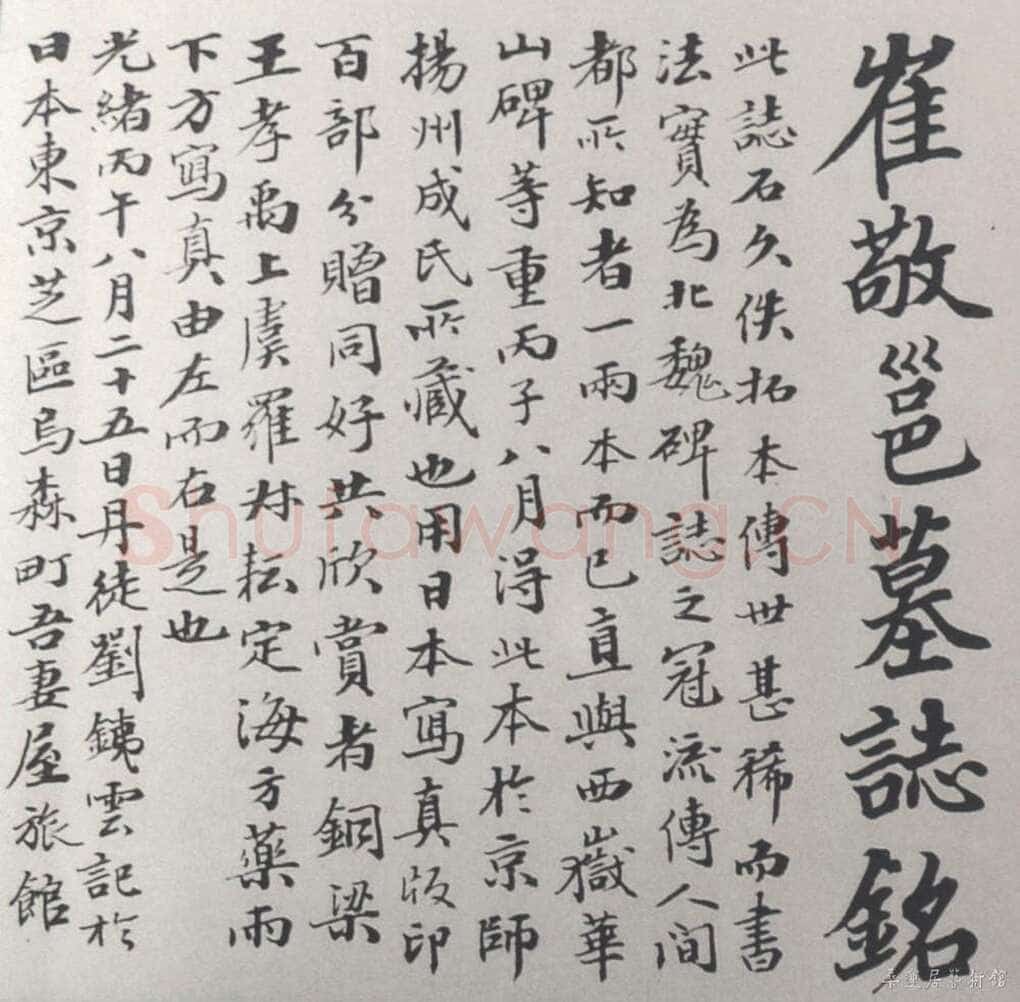 崔敬邕墓誌銘
此誌石久佚拓本傳世甚稀而書
法實為北魏碑誌之冠流傳人間
都所知者一兩本而已直與西嶽華
山碑等重丙子八月得此本於京師
揚州成氏所藏也用日本寫真版印
百部分贈同好共欣賞者銅梁
王孝禹上虞羅叔耘定海方藥雨
下方寫真由左而右是也
光緒丙午八月二十五日丹徒劉銕雲記於
日本東京芝區烏森町吾妻屋旅館
Shufawang.CN
藝術館